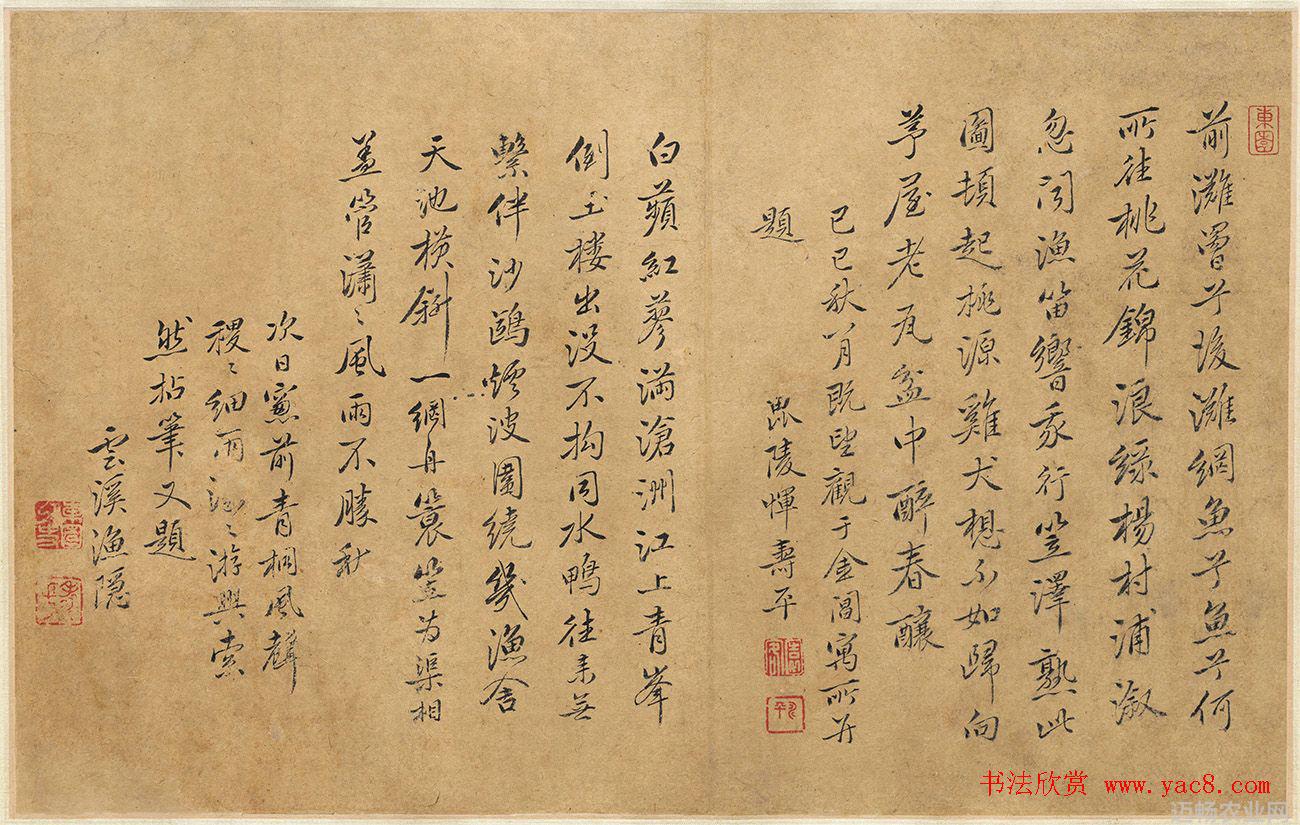 東園
前灘曾下後灘網魚乎魚乎何
所往桃花錦浪綠楊村浦漵
忽聞漁笛響我行笠澤熟此
圖頓起桃源雞犬想不如歸向
茅屋老瓦盆中醉春釀
己巳秋八月既望觀于金閶寓所并
題
毘陵惲壽平
白蘋紅蓼滿滄洲江上青峯
倒玉樓出沒不拘同水鴨往來無
繫伴沙鷗煙波圍繞幾漁舍
天池橫斜一綱舟簑笠为渠相
蓋管瀟〻風雨不勝秋
次日窻前青桐風聲
稷〻細雨〻游興索
然拈筆又題
雲溪漁隱
书法欣赏 www.yac8.com
迈畅农业网